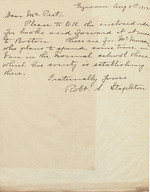 Aug 5th
Dear Mr. Peet:
Please to O.K. the enclosed order
for books and forward it at once
to Boston. These are for Mr.
who plans to spend some time in
Van in the Normal school there
which his society is establishing
there.
Fraternally Yours
Robt. S. Stapleton